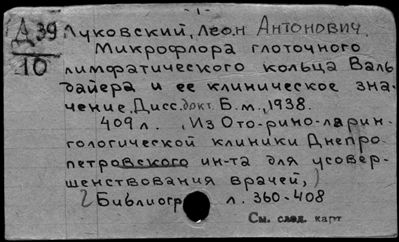 - 1 -
Д 39
10
Луковский, Леон Антонович.
Микрофлора глоточного
лимфатического кольца Валь
дайера и ее клиническое зна-
чение. Дисс. докт. Б.м., 1938.
409 л. (Из Ото-рино-ларин-
гологической клиники Днепро
петровского ин-та для усовер-
шенствования врачей,)
Библиогр л. 360-408
См. след. карт